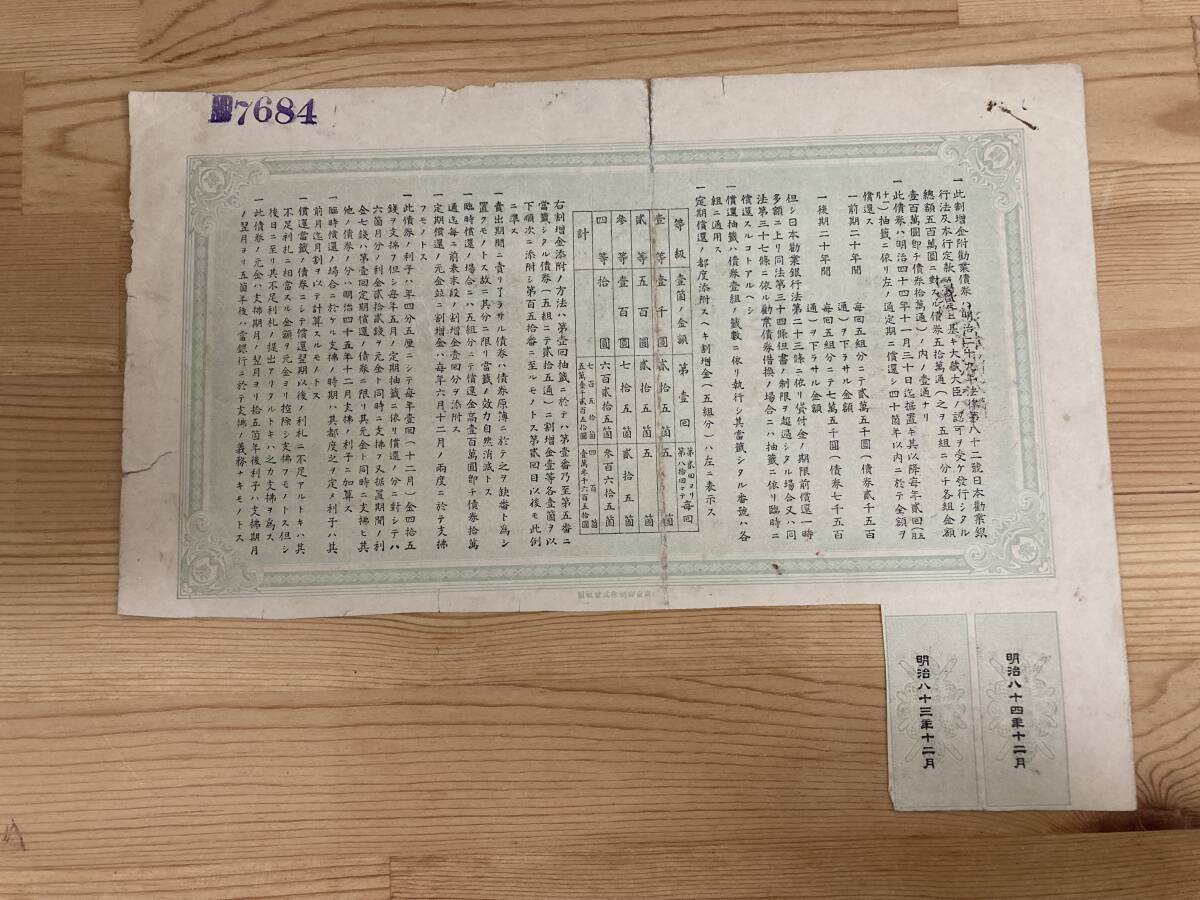 7684
一此割増金附勸業債券ハ明治二十九年法律第八十二號日本勸業銀
行法及本行定款ニ基キ大藏大臣ノ認可ヲ受ケ發行シタル
總額五百萬圓ニ對スル債券五拾萬通(之ヲ五組ニ分チ各組金額
壹百萬圓卽チ債券拾萬通)ノ内ノ壹通ナリ
一此債券ハ明治四十四年十一月三十日迄据置キ其以降每年貳回(五月
十一月)抽籤ニ依リ左ノ通定期ニ償還シ四十箇年以内ニ於テ全額ヲ
償還ス
一前期二十年間 每回五組分ニテ貳萬五千圓(債券貳千五百
通)ヲ下ラサル金額
一後期二十年間 每回五組分ニテ七萬五千圓(債券七千五百
通)ヲ下ラサル金額
但シ日本勸業銀行法第二十三條ニ依リ貸付金ノ期限前償還一時
多額ニ上リ同法第三十四條但書ノ制限ヲ超過シタル場合又ハ同
法第三十七條ニ依ル勸業債券借換ノ場合ニハ抽籤ニ依リ臨時ニ
償還スルコトアルヘシ
一償還抽籤ハ債券壹組ノ籤數ニ依リ執行シ其當籤シタル番號ハ各
組ニ通用ス
一定期償還ノ都度添附スヘキ割増金(五組分)ハ左ニ表示ス
等級 壹箇ノ金額 第壹回 第貳回ヨリ第八拾回マテ每回
壹等 壹千圓 貳拾五箇 五箇
貳等 五百圓 貳拾五箇 五箇
參等 壹百圓 七拾五箇 貳拾五箇
四等 拾圓 六百貳拾五箇 參百六拾五箇
計 七百五拾箇 五萬壹千貳百五拾圓 四百箇 壹萬參千六百五拾圓
右割增金添附ノ方法ハ第壹回抽籤ニ於テハ第壹番乃至第五番ニ
當籤シタル債券(五組ニテ貳拾五通)ニ割增金壹等各壹箇ヲ以
下順次ニ添附シ第百五拾番ニ至ルモノトス第貳回目以後モ此例
ニ準ス
一賣出期間ニ賣リ了ラサル債券ハ債券原簿ニ於テ之ヲ缺番ト爲シ
置クモノトス故ニ其分ニ限リ當籤ノ效力自然消滅トス
一臨時償還ノ場合ニハ五組分ニテ償還金高壹百萬圓卽チ債券拾萬
通迄每ニ前表末段ノ割增金壹回分ヲ添附ス
一定期償還ノ元金竝ニ割增金ハ每年六月十二月ノ兩度ニ於テ支拂
フモノトス
一此債券ノ利子ハ年四分五厘ニシテ每年壹回(十二月)金四拾五
錢ヲ支拂フ但シ每年五月ノ定期抽籤ニ依リ償還ノ分ニ對シテハ
六箇月分ノ利金貳拾貳錢ヲ元金ト同時ニ支拂フ又据置期間ノ利
金七錢ハ第壹回定期償還ノ債券ニ限リ其元金ト同時ニ支拂ヒ其
他ノ債券ノ分ハ明治四十五年十二月支拂ノ利子ニ加算ス
一臨時償還ノ場合ニ於ケル支拂ノ時期ハ其都度之ヲ定メ利子ハ其
前月迄月割ヲ以テ計算スルモノトス
一償還當籤ノ債券ニシテ償還翌期以後ノ利札ニ不足アルトキハ其
不足利札ニ相當スル金額ヲ元金ヨリ控除シ支拂フモノトス但シ
後日ニ至リ其不足利札ノ提出アリタルトキハ之カ支拂ヲ爲ス
一此債券ノ元金ハ支拂期月ノ翌月ヨリ拾五箇年後利子ハ支拂期月
ノ翌月ヨリ五箇年後ハ當銀行ニ於テ支拂ノ義務ナキモノトス
明治八十四年十二月
明治八十三年十二月